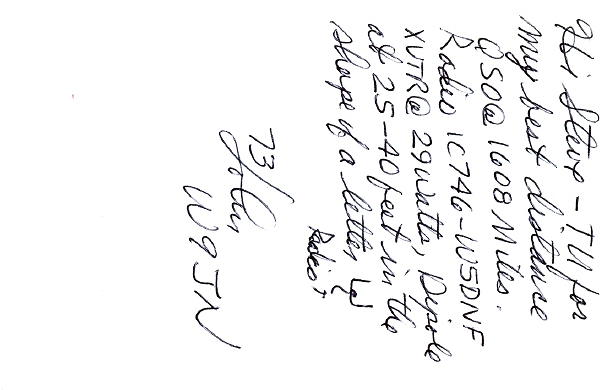 Hi Steve - TU for
my best distance
QSO @ 1608 Miles.
Radio IC746 - W5DNF
XVTR @ 29 watts, Dipole
at 25-40 feet in the
shape of a letter
73/
John
W9JN